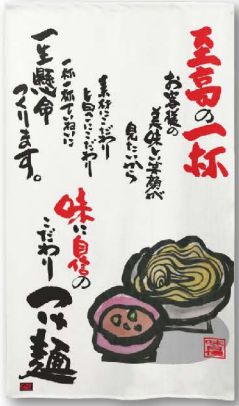 至高の一杯
お客様の
美味しい笑顔が
見たいから
素材にこだわり
旨さにこだわり
一杯一杯ていねいに
一生懸命
つくります。
味に自信の
こだわり
つけ麺